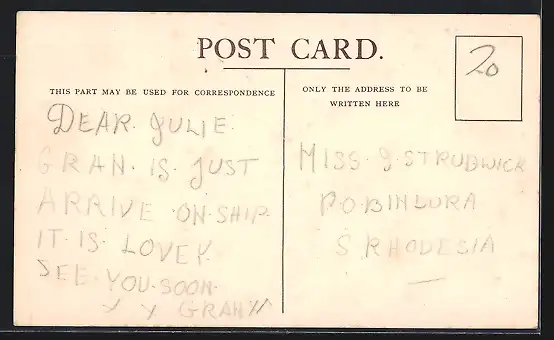 POST CARD.
20
THIS PART MAY BE USED FOR CORRESPONDENCE
ONLY THE ADDRESS TO BE
WRITTEN HERE
DEAR. JULIE.
GRAN. IS. JUST
ARRIVE ON. SHIP.
IT. IS. LOVEY.
SEE. YOU. SOON.
Y Y GRAN
MISS. J. STRUDWICK
P.O. BINDURA
S. RHODESIA